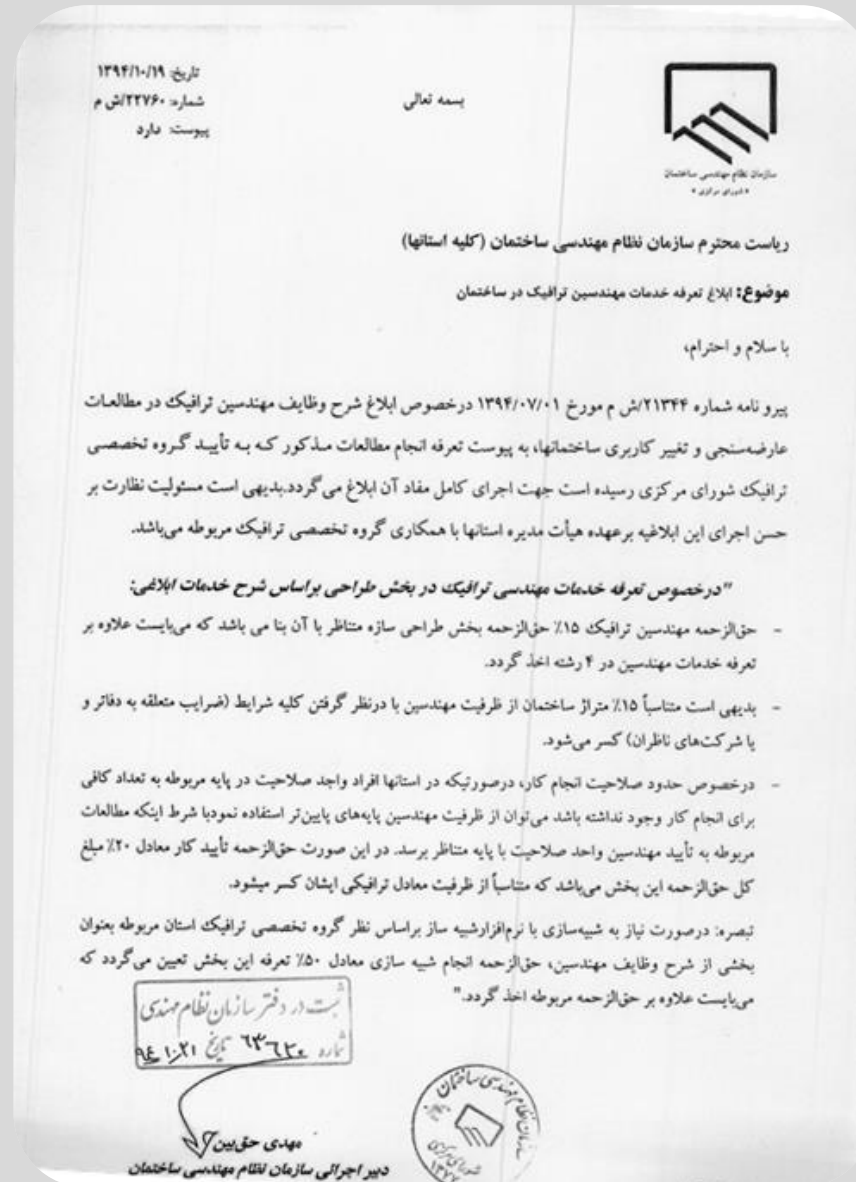 تاریخ: ۱۳۹۴/۱۰/۱۹
شماره: ۲۲۷۶۰/ش م
پیوست: دارد
بسمه تعالی
سازمان نظام مهندسی ساختمان
« شورای مرکزی »
ریاست محترم سازمان نظام مهندسی ساختمان (کلیه استانها)
موضوع: ابلاغ تعرفه خدمات مهندسین ترافیک در ساختمان
با سلام و احترام،
پیرو نامه شماره ۲۱۳۴۴/ش م مورخ ۱۳۹۴/۰۷/۰۱ درخصوص ابلاغ شرح وظایف مهندسین ترافیک در مطالعات
عارضه‌سنجی و تغییر کاربری ساختمانها، به پیوست تعرفه انجام مطالعات مذکور که به تأیید گروه تخصصی
ترافیک شورای مرکزی رسیده است جهت اجرای کامل مفاد آن ابلاغ می‌گردد.بدیهی است مسئولیت نظارت بر
حسن اجرای این ابلاغیه برعهده هیأت مدیره استانها با همکاری گروه تخصصی ترافیک مربوطه می‌باشد.
"درخصوص تعرفه خدمات مهندسی ترافیک در بخش طراحی براساس شرح خدمات ابلاغی:
- حق‌الزحمه مهندسین ترافیک ۱۵٪ حق‌الزحمه بخش طراحی سازه متناظر با آن بنا می باشد که می‌بایست علاوه بر
تعرفه خدمات مهندسین در ۴ رشته اخذ گردد.
- بدیهی است متناسباً ۱۵٪ متراژ ساختمان از ظرفیت مهندسین با درنظر گرفتن کلیه شرایط (ضرایب متعلقه به دفاتر و
یا شرکت‌های ناظران) کسر می‌شود.
- درخصوص حدود صلاحیت انجام کار، درصورتیکه در استانها افراد واجد صلاحیت در پایه مربوطه به تعداد کافی
برای انجام کار وجود نداشته باشد می‌توان از ظرفیت مهندسین پایه‌های پایین‌تر استفاده نمودبا شرط اینکه مطالعات
مربوطه به تأیید مهندسین واحد صلاحیت با پایه متناظر برسد. در این صورت حق‌الزحمه تأیید کار معادل ۲۰٪ مبلغ
کل حق‌الزحمه این بخش می‌باشد که متناسباً از ظرفیت معادل ترافیکی ایشان کسر میشود.
تبصره: درصورت نیاز به شبیه‌سازی با نرم‌افزارشبیه ساز براساس نظر گروه تخصصی ترافیک استان مربوطه بعنوان
بخشی از شرح وظایف مهندسین، حق‌الزحمه انجام شبیه سازی معادل ۵۰٪ تعرفه این بخش تعیین می‌گردد که
می‌بایست علاوه بر حق‌الزحمه مربوطه اخذ گردد."
ثبت در دفتر سازمان نظام مهندسی
شماره ۶۳۶۳۰ تاریخ ۹۴،۱۰،۲۱
سازمان نظام مهندسی ساختمان
شورای مرکزی
مهدی حق‌بین
دبیر اجرائی سازمان نظام مهندسی ساختمان